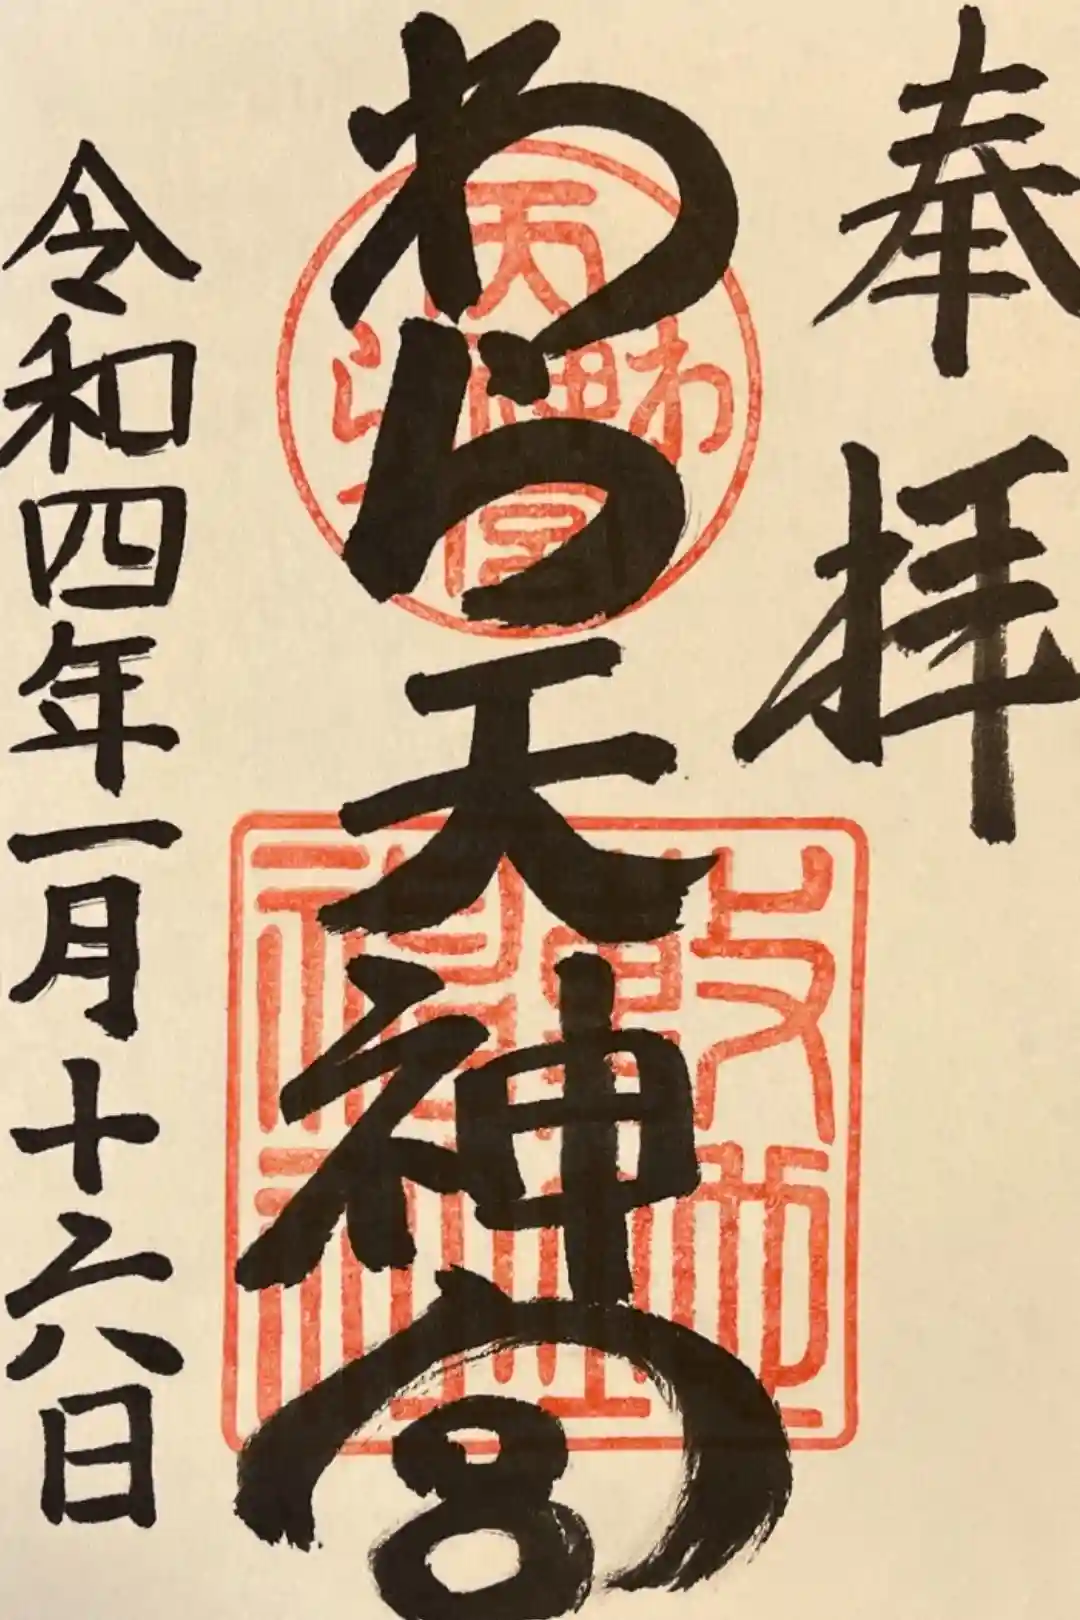 奉拝
わら天神宮
令和四年一月十六日
わら天神宮